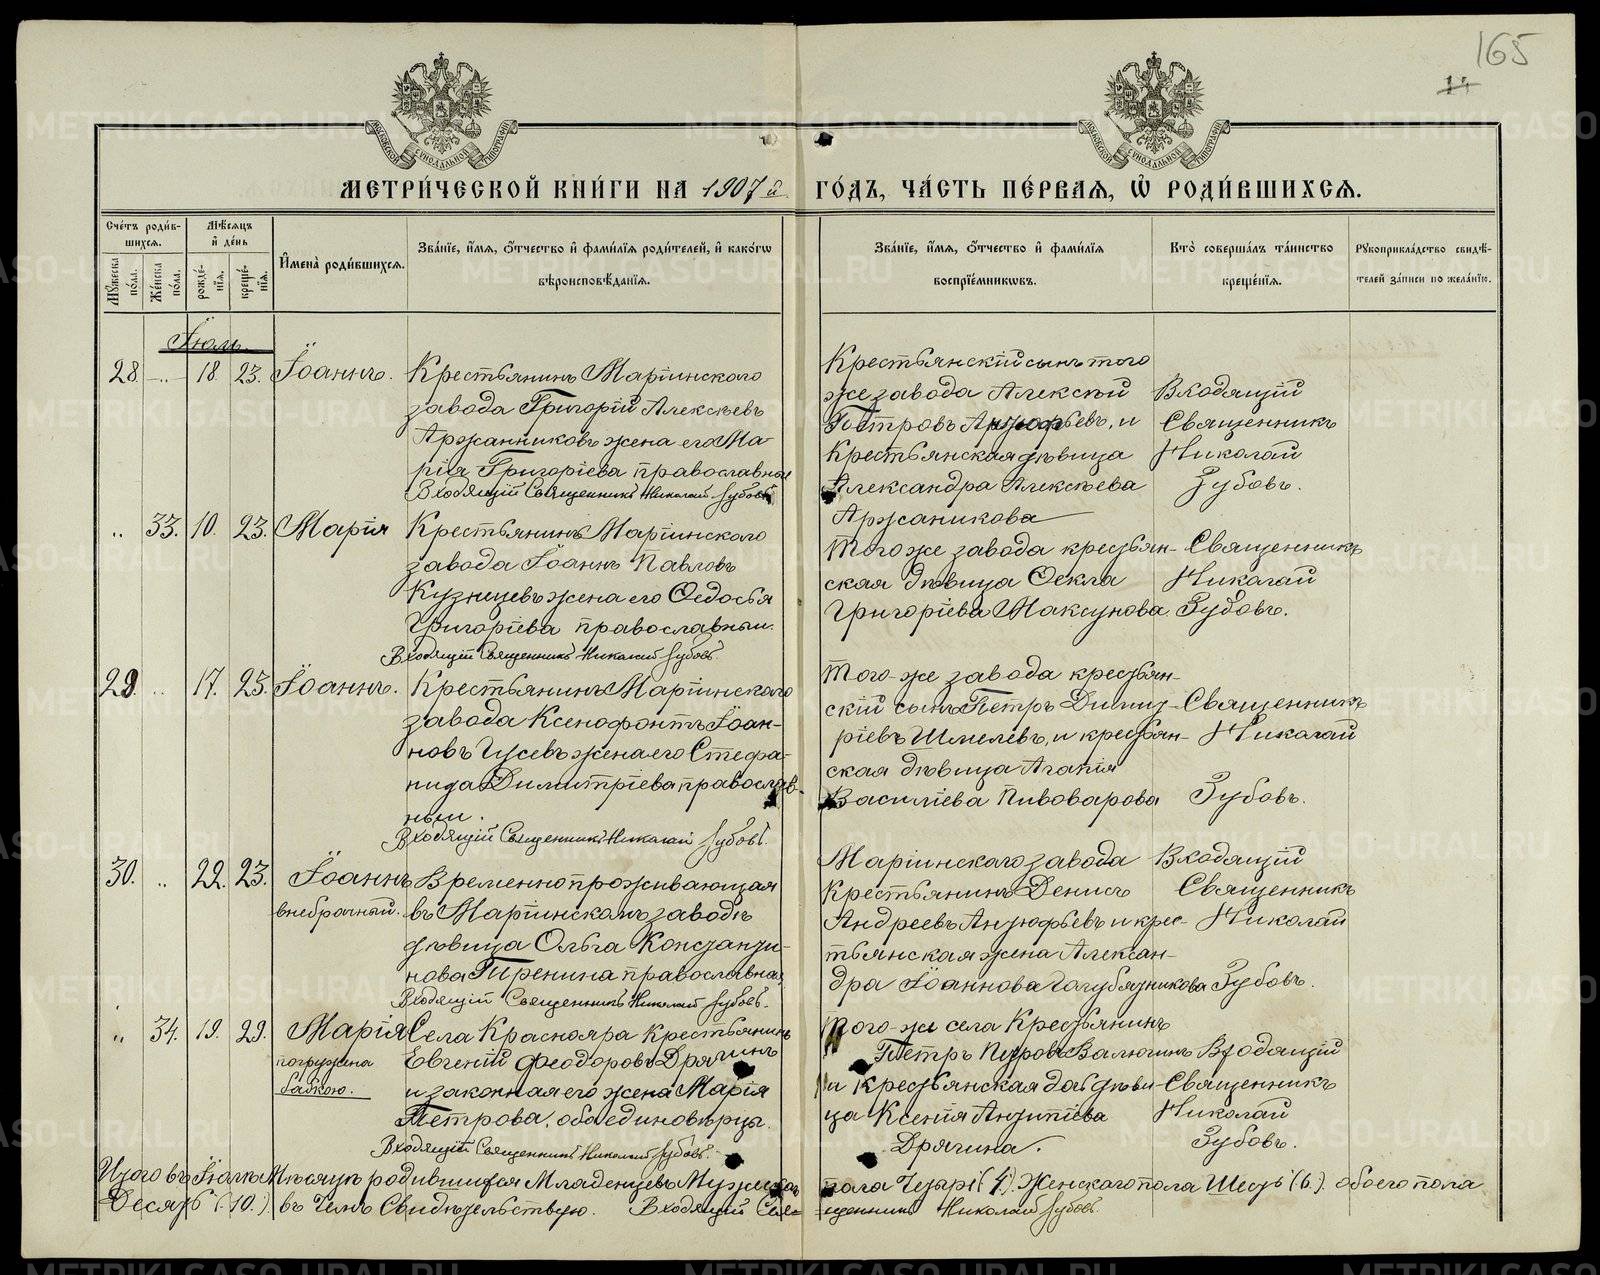 165
14
МЕТРИ́ЧЕСКОЙ КНИ́ГИ НА 1907 й
ГО́ДЪ, ЧА́СТЬ ПЕ́РВАѦ, Ѡ҆ РОДИ́ВШИХСѦ.
Сче́тъ роди́в-
шихсѧ.
Мѣ́сѧцъ
и҆ де́нь
И҆мена̀ роди́вшихсѧ.
Зва́нїе, и҆́мѧ, ѻ҆́тчество и҆ фами́лїѧ роди́телей, и҆ како́гѡ
вѣроисповѣ́данїѧ.
Мꙋ́жеска по́ла.
Же́нска по́ла.
рожде́-нїѧ.
креще́-нїѧ.
Зва́нїе, и҆́мѧ, ѻ҆́тчество и҆ фами́лїѧ
воспрїе́мникѡвъ.
Кто̀ соверша́лъ та́инство
креще́нїѧ.
Рꙋкоприкла́дство свидѣ́-
телей за́писи по жела́нїю.
Іюль
28. — „ — 18 23. Іоаннъ.
Крестьянинъ Маріинскаго
завода Григорій Алексѣевъ
Аржанниковъ жена его Ма-
рія Григоріева православные
Входящій Священникъ Николай Зубовъ
Крестьянскій сынъ того
же завода Алексѣй
Петровъ Ануфрьевъ, и
Крестьянская дѣвица
Александра Алексѣева
Аржаникова
Входящій
Священникъ
Николай
Зубовъ.
„ 33. 10. 23. Марія
Крестьянинъ Маріинскаго
завода Іоаннъ Павловъ
Кузнецевъ жена его Ѳедосья
Григоріева православныи.
Входящій Священникъ Николай Зубовъ.
Того же завода крестьян-
ская дѣвица Ѳекла
Григоріева Максунова
Священникъ
Николай
Зубовъ.
29. „ 17. 23. Іоаннъ.
Крестьянинъ Маріинскаго
завода Ксенофонтъ Іоан-
новъ Гусевъ жена его Стефа-
нида Димитріева православ-
ныи.
Входящій Священникъ Николай Зубовъ.
Того-же завода крестьян-
скій сынъ Петръ Димит-
ріевъ Шмелевъ, и крестьян-
ская дѣвица Агапія
Василіева Пивоварова
Священникъ
Николай
Зубовъ.
30. „ 22. 23. Іоаннъ
внебрачный.
Временно проживающая
въ Маріинскомъ заводѣ
дѣвица Ольга Константи-
нова Тиренина православная
Входящій Священникъ Николай Зубовъ.
Маріинскаго завода
Крестьянинъ Денисъ
Андреевъ Ануфрьевъ и крес-
тьянская жена Алексан-
дра Іоаннова Голубятникова
Входящій
Священникъ
Николай
Зубовъ.
„ 34. 19. 29. Марія
погружена
бабкою.
Села Краснояра Крестьянинъ
Евгеній Феодоровъ Дрягинъ
и законная его жена Марія
Петрова, оба единовѣрцы.
Входящій Священникъ Николай Зубовъ.
Того-же села Крестьянинъ
Петръ Петровъ Валюгинъ
и крестьянская дочь дѣви-
ца Ксенія Антипіева
Дрягина.
Входящій
Священникъ
Николай
Зубовъ.
Итого въ Іюлѣ Мѣсяцѣ родившихся Младенцевъ Мужеска пола Четыри (4). Женскаго пола Шесть (6.) обоего пола
Десять (10.) въ Чемъ Свидѣтельствую. Входящій Священникъ Николай Зубовъ